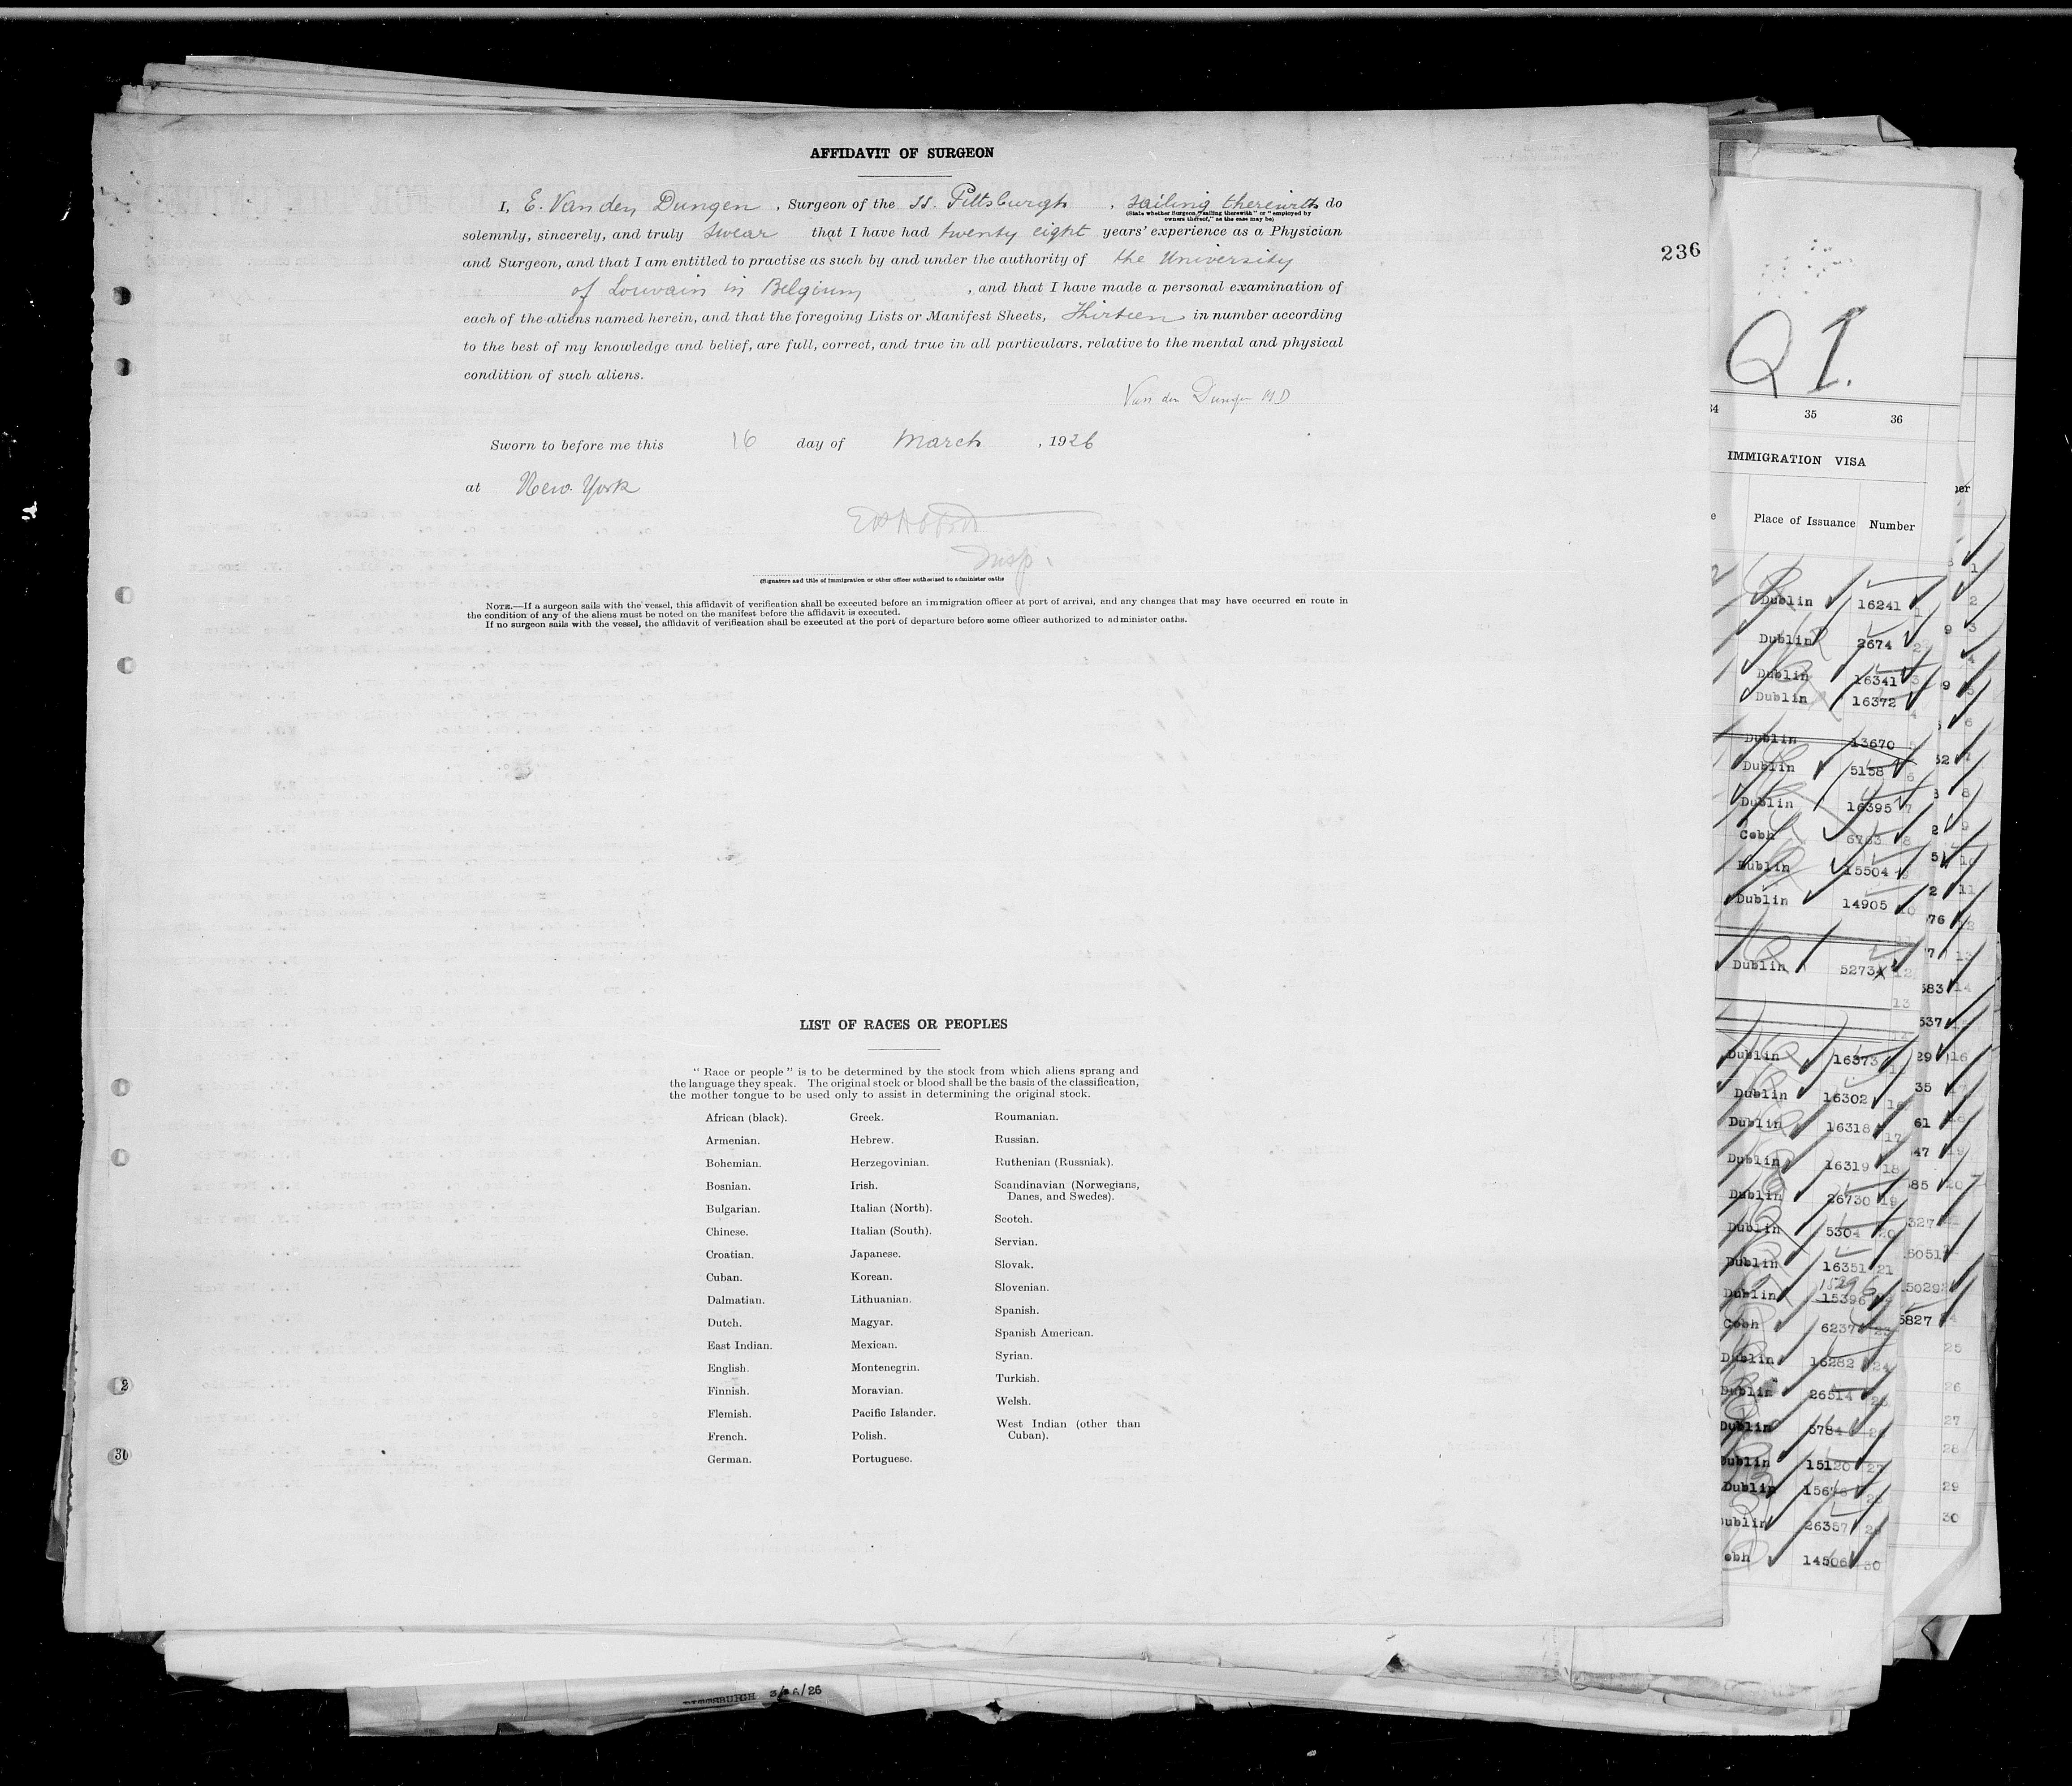 AFFIDAVIT OF SURGEON
I, E. Van den Dungen, Surgeon of the SS. Pittsburgh, sailing therewith do
(State whether Surgeon "sailing therewith" or "employed by
owners thereof," as the case may be)
solemnly, sincerely, and truly swear that I have had twenty eight years' experience as a Physician
and Surgeon, and that I am entitled to practise as such by and under the authority of the University
of Louvain in Belgium, and that I have made a personal examination of
each of the aliens named herein, and that the foregoing Lists or Manifest Sheets, Thirteen in number according
to the best of my knowledge and belief, are full, correct, and true in all particulars. relative to the mental and physical
condition of such aliens.
Van den Dungen MD
Sworn to before me this 16 day of March, 1926
at New York
Insp.
(Signature and title of immigration or other officer authorized to administer oaths
NOTE.—If a surgeon sails with the vessel, this affidavit of verification shall be executed before an immigration officer at port of arrival, and any changes that may have occurred en route in
the condition of any of the aliens must be noted on the manifest before the affidavit is executed.
If no surgeon sails with the vessel, the affidavit of verification shall be executed at the port of departure before some officer authorized to administer oaths.
236
LIST OF RACES OR PEOPLES
"Race or people" is to be determined by the stock from which aliens sprang and
the language they speak. The original stock or blood shall be the basis of the classification,
the mother tongue to be used only to assist in determining the original stock.
African (black).
Armenian.
Bohemian.
Bosnian.
Bulgarian.
Chinese.
Croatian.
Cuban.
Dalmatian.
Dutch.
East Indian.
English.
Finnish.
Flemish.
French.
German.
Greek.
Hebrew.
Herzegovinian.
Irish.
Italian (North).
Italian (South).
Japanese.
Korean.
Lithuanian.
Magyar.
Mexican.
Montenegrin.
Moravian.
Pacific Islander.
Polish.
Portuguese.
Roumanian.
Russian.
Ruthenian (Russniak).
Scandinavian (Norwegians,
Danes, and Swedes).
Scotch.
Servian.
Slovak.
Slovenian.
Spanish.
Spanish American.
Syrian.
Turkish.
Welsh.
West Indian (other than
Cuban).
Q 1.
34 35 36
IMMIGRATION VISA
Place of Issuance Number
Dublin 16241 1
Dublin 2674 2
Dublin 16341 3
Dublin 16372 4
Dublin 13670 5
Dublin 5158 6
Dublin 16395 7
Cobh 6763 8
Dublin 15504 9
Dublin 14905 10
Dublin 5273 12
13
Dublin 16373
Dublin 16302 16
Dublin 16318 17
Dublin 16319 18
Dublin 26730 19
Dublin 5304 20
Dublin 16351 21
Dublin 15396
Cobh 6237 23
Dublin 16282 24
Dublin 26514
Dublin 5784
Dublin 15120 27
Dublin
Dublin 26357
14506 30
25
26
27
28
29
30
PITTSBURGH